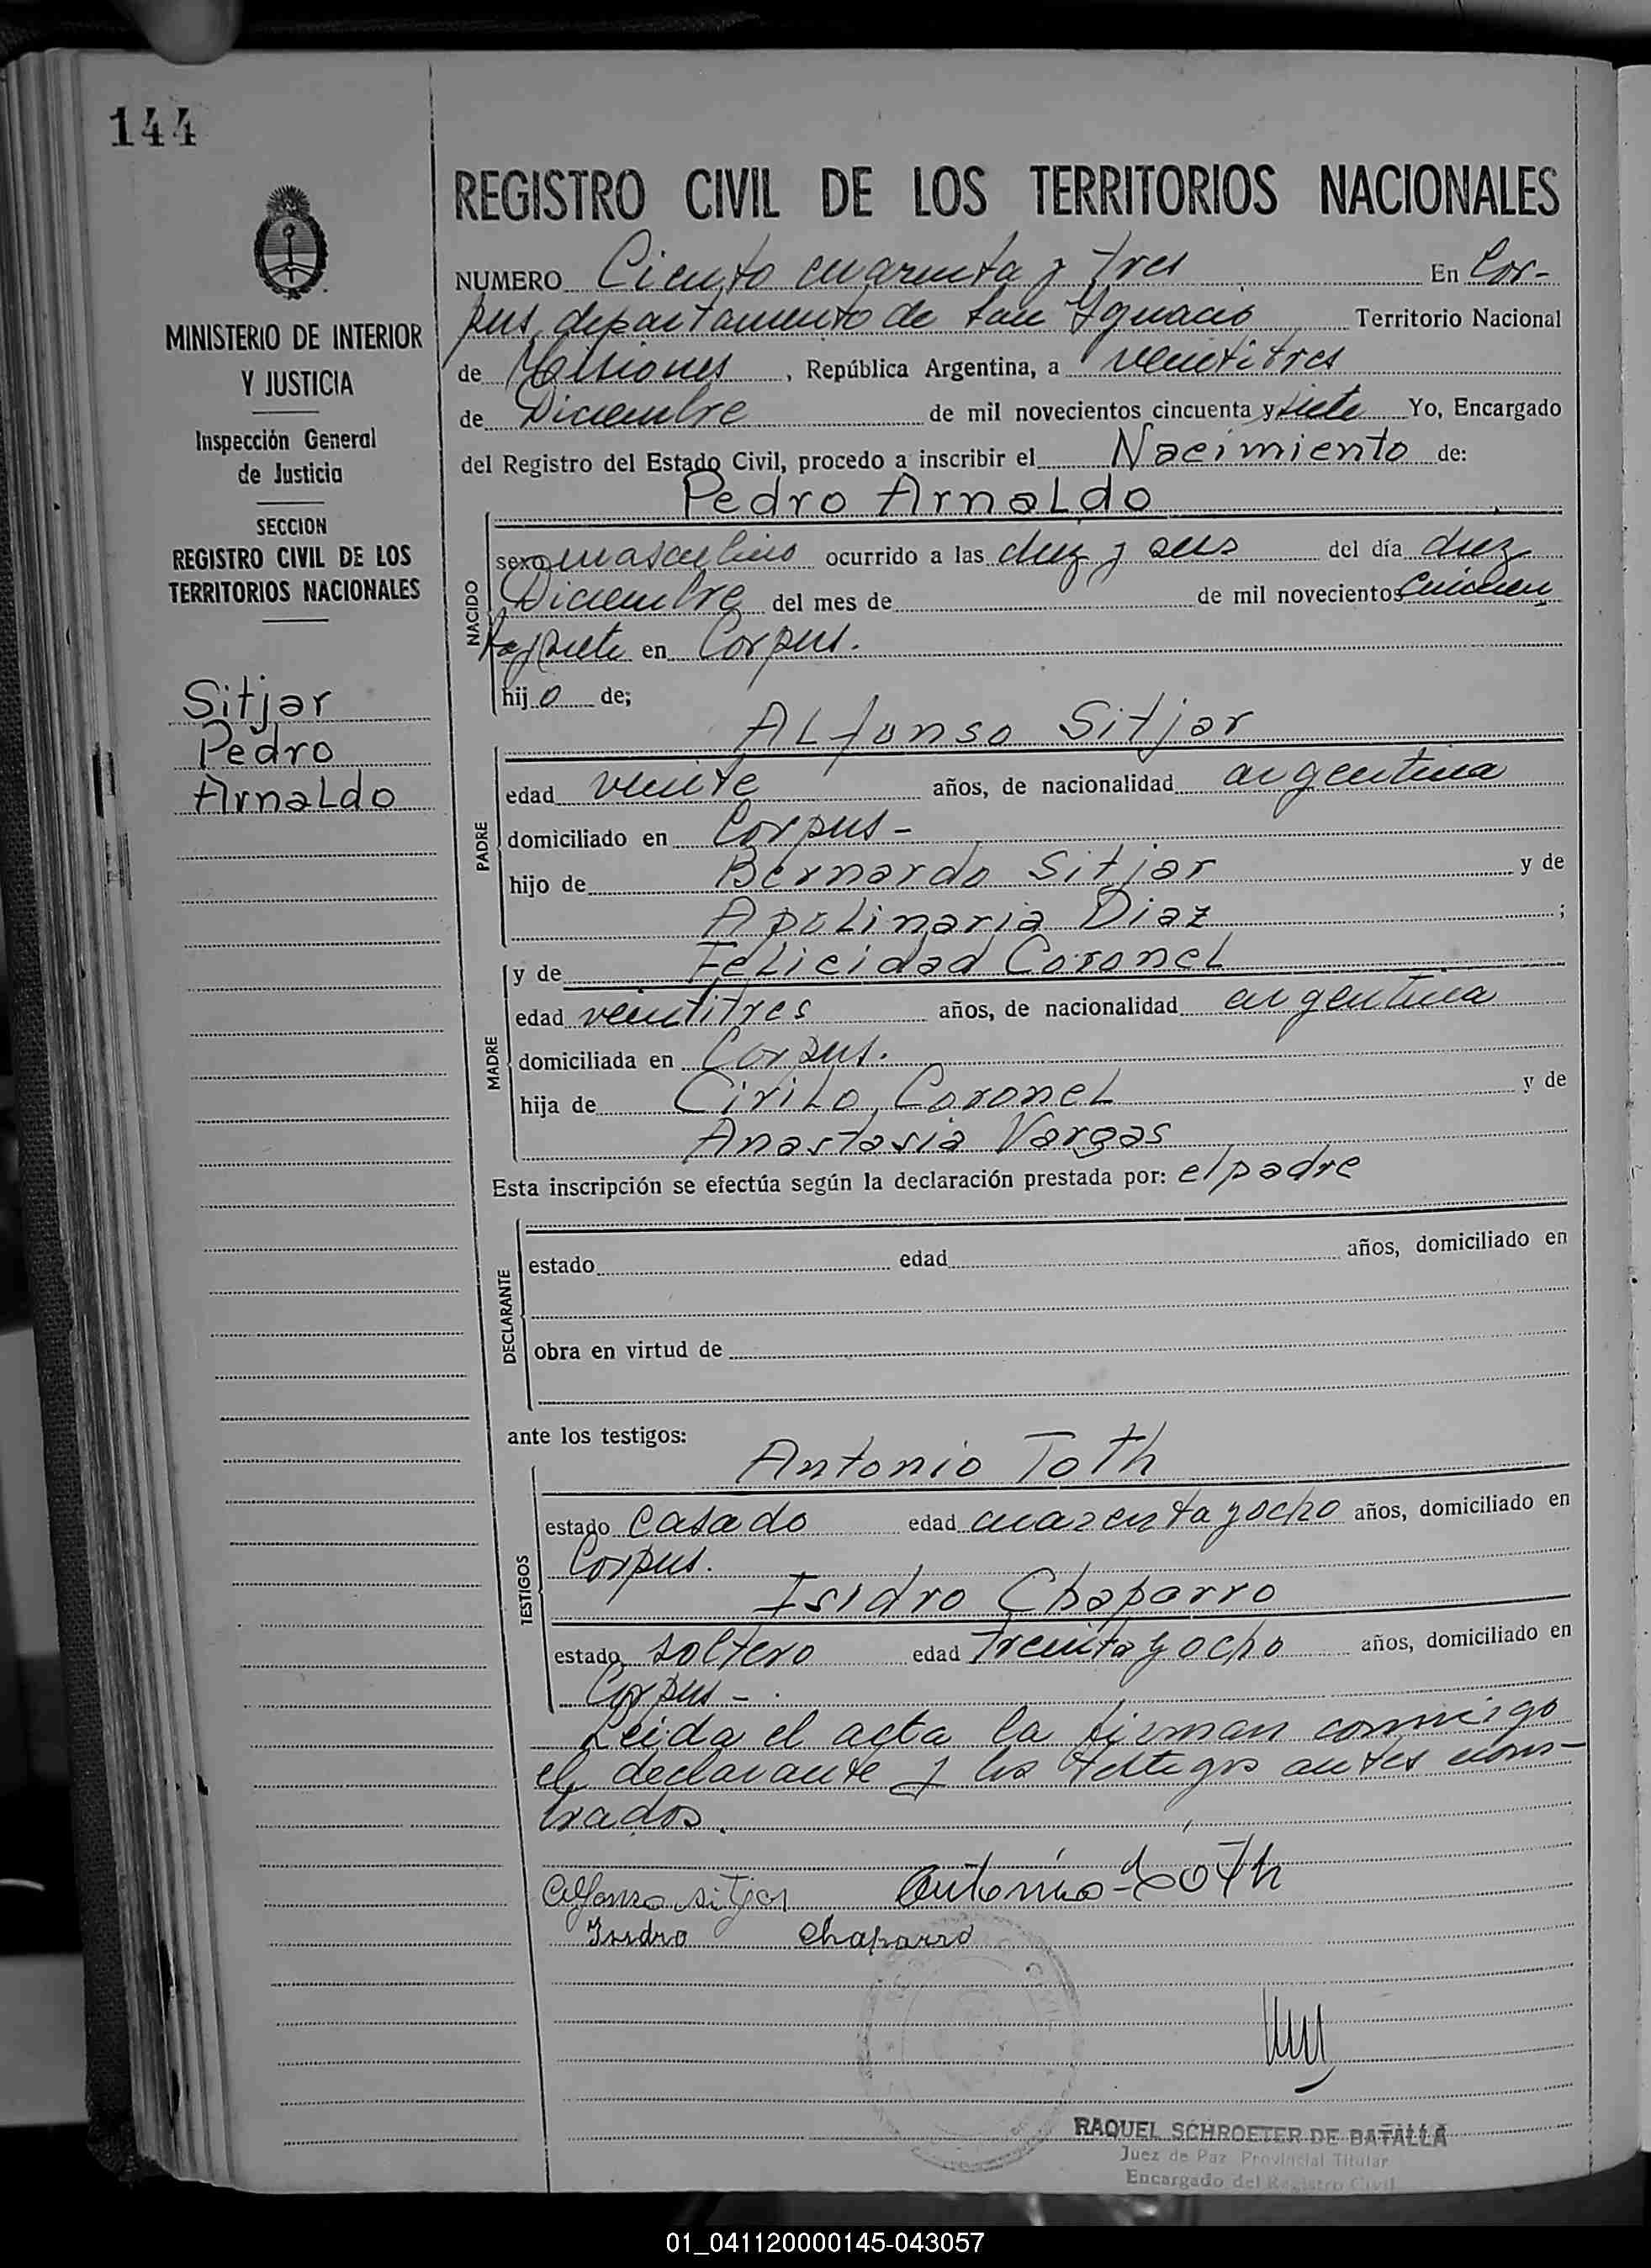 144
REGISTRO CIVIL DE LOS TERRITORIOS NACIONALES
NUMERO Ciento cuarenta y tres En Cor-
pus, departamento de San Ygnacio Territorio Nacional
de Misiones, República Argentina, a veintitres
de Diciembre de mil novecientos cincuenta y siete Yo, Encargado
del Registro del Estado Civil, procedo a inscribir el Nacimiento de:
Pedro Arnaldo
MINISTERIO DE INTERIOR
Y JUSTICIA
Inspección General
de Justicia
SECCION
REGISTRO CIVIL DE LOS
TERRITORIOS NACIONALES
Sitjar
Pedro
Arnaldo
NACIDO
sexo masculino ocurrido a las diez y seis del día diez
Diciembre del mes de de mil novecientos cincuen
ta y siete en Corpus.
hijo de;
Alfonso Sitjar
PADRE
edad veinte años, de nacionalidad argentina
domiciliado en Corpus-
hijo de Bernardo Sitjar y de
Apolinaria Diaz ;
y de Felicidad Coronel
MADRE
edad veintitres años, de nacionalidad argentina
domiciliada en Corpus.
hija de Cirilo Coronel y de
Anastasia Vargas
Esta inscripción se efectúa según la declaración prestada por: el padre
DECLARANTE
estado edad años, domiciliado en
obra en virtud de
ante los testigos:
Antonio Toth
TESTIGOS
estado casado edad cuarenta y ocho años, domiciliado en
Corpus.
Isidro Chaparro
estado soltero edad treinta y ocho años, domiciliado en
Corpus-.
Leida el acta la firman conmigo
el declarante y los testigos antes nom-
brados.
Alfonso Sitjar Antonio Toth
Isidro Chaparro
RAQUEL SCHROETER DE BATALLA
Juez de Paz Provincial Titular
Encargado del Registro Civil
01_041120000145-043057